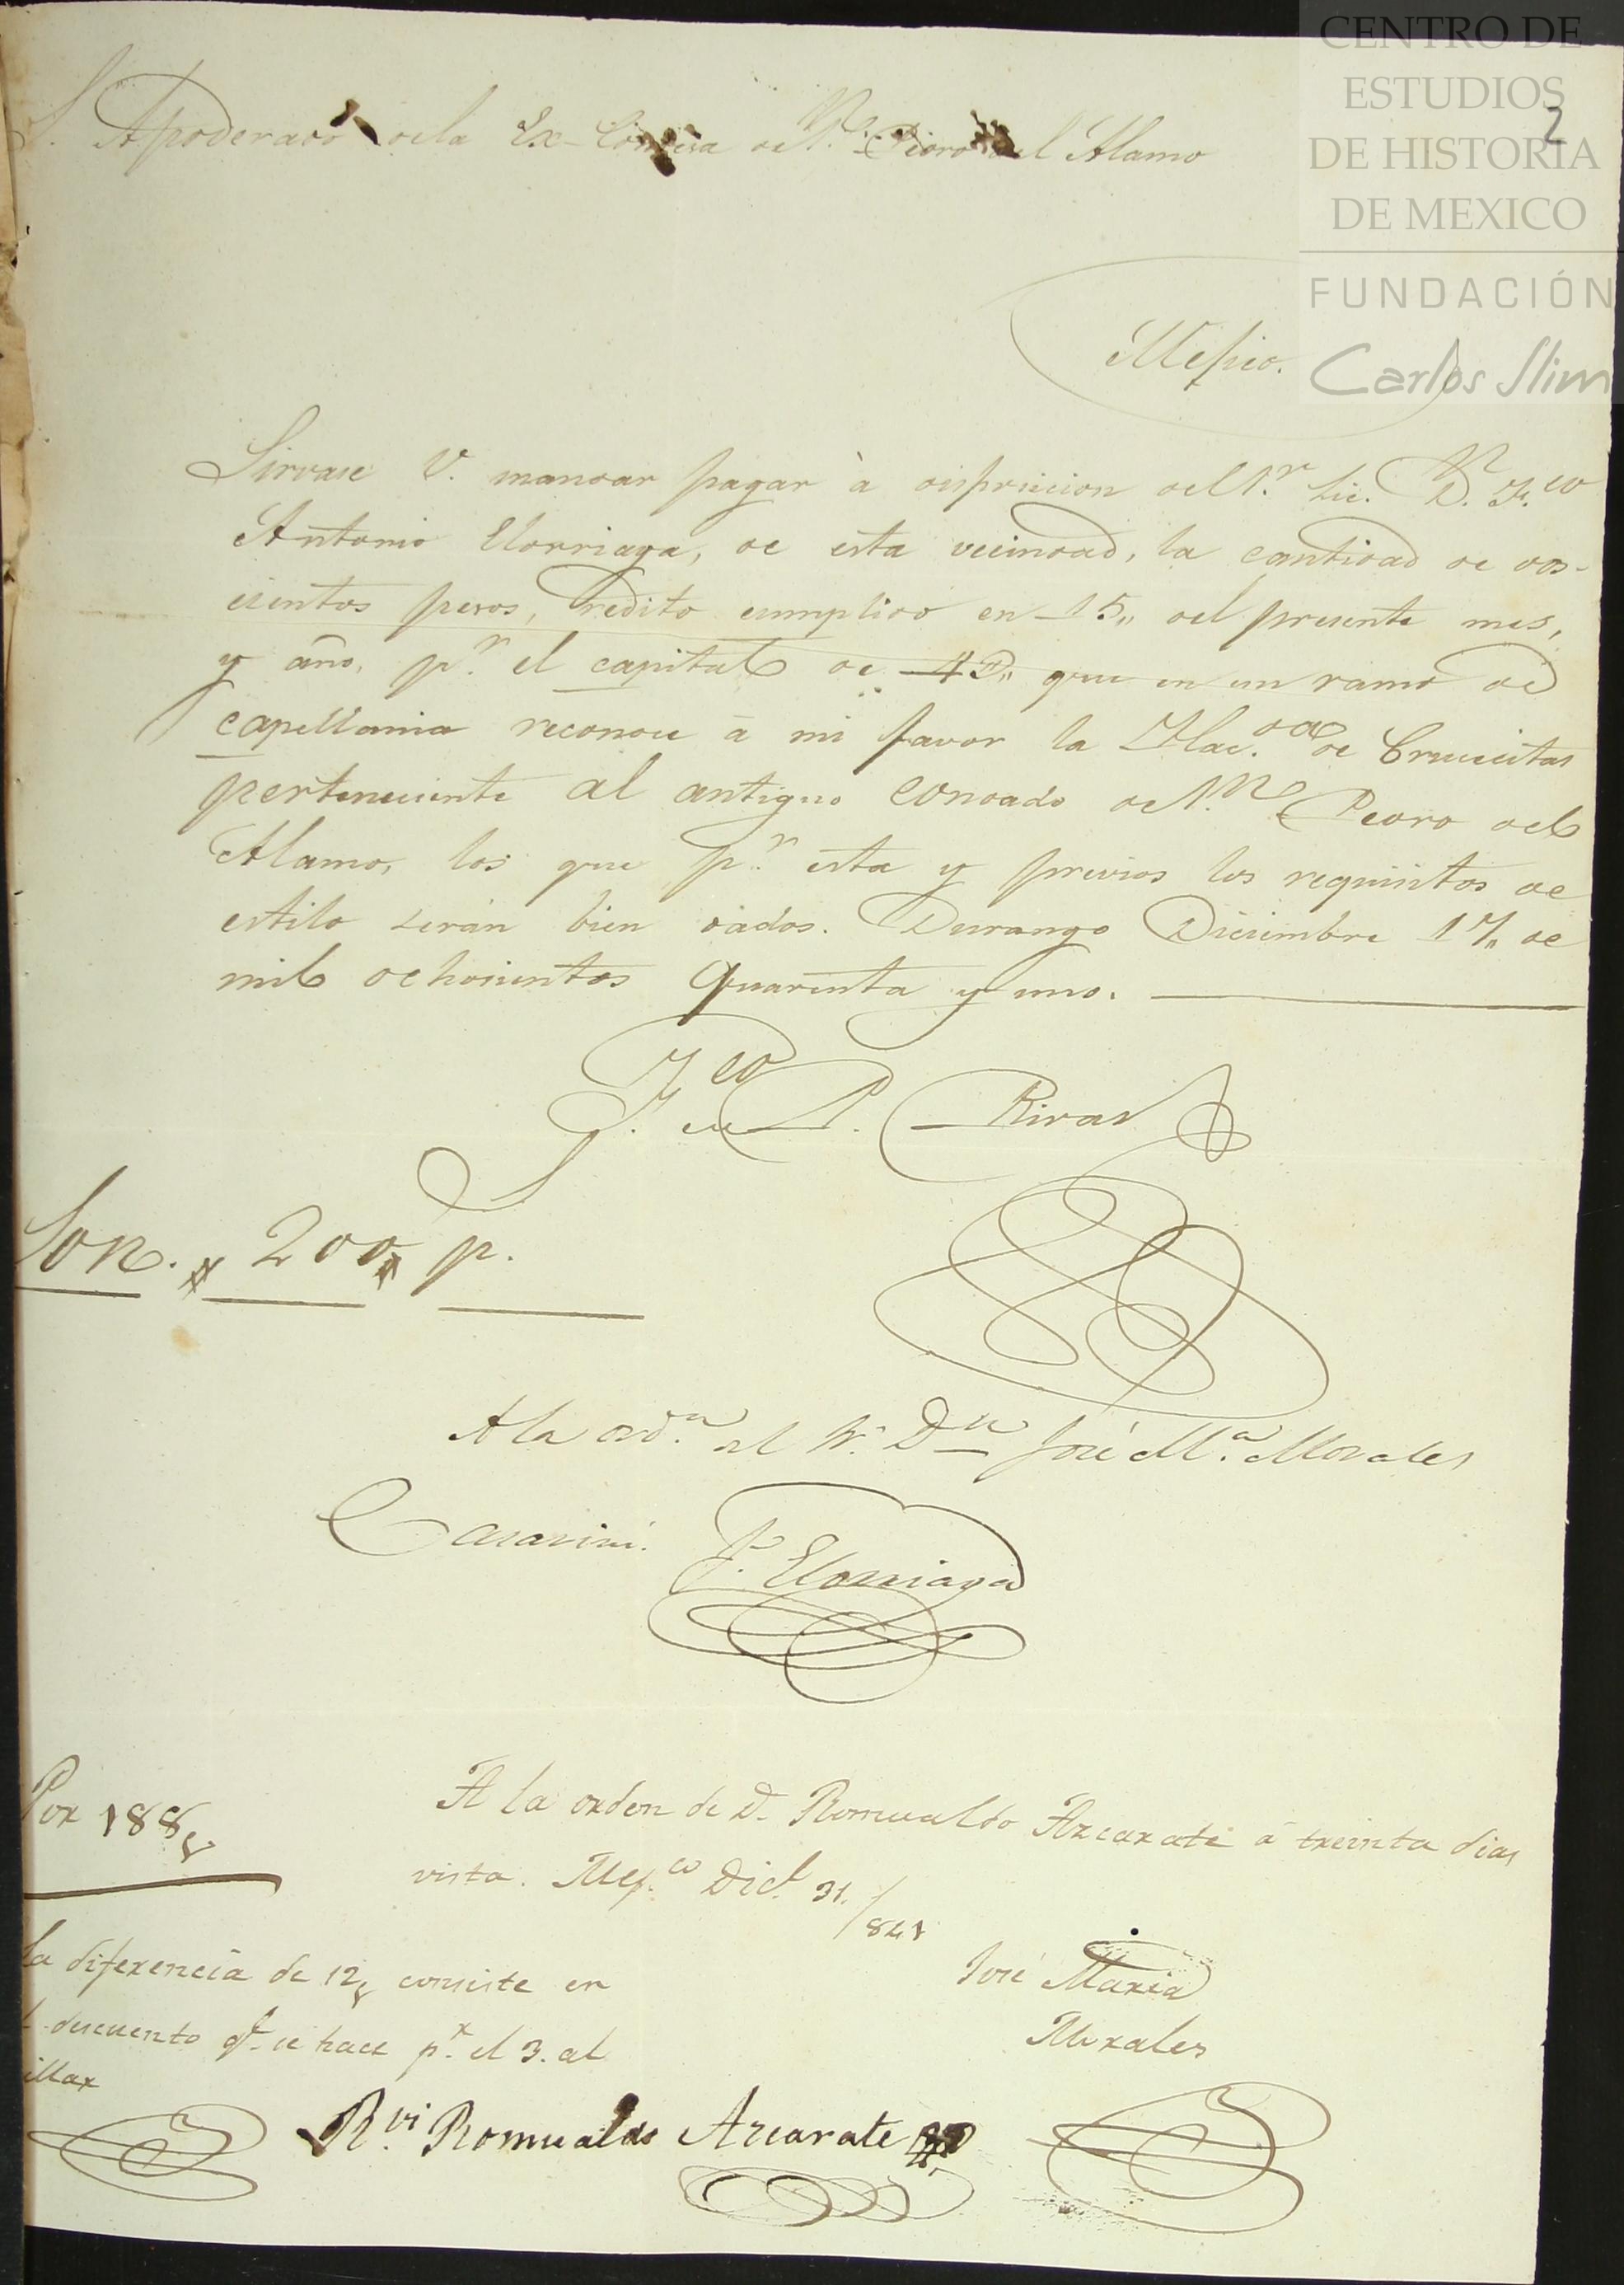 CENTRO DE
ESTUDIOS
DE HISTORIA
DE MEXICO
FUNDACIÓN
Carlos Slim
2
S. Apoderado de la Ex-Condesa de S.n Pedro del Alamo
Mejico.
Sirvase V. mandar pagar à disposicion del S.r Lic. D. F.co
Antonio Elorriaga, de esta vecindad, la cantidad de dos-
cientos pesos, redito cumplido en 15,, del presente mes,
y año, p.r el capital de 4D,, que en un ramo de
capellania reconoce à mi favor la Hac.da de Crucecitas
perteneciente al antiguo condado de S.n Pedro del
Alamo, los que p.r esta y previos los requisitos de
estilo serán bien dados. Durango Diciembre 17,, de
mil ochocientos quarenta y uno.
F.co de P. Rivas
Son. 200 p.
A la ord.n del S.r D.n José M.a Morales
Casarini. F. Elorriaga
Por 188
A la orden de D. Romualdo Azcarate à treinta dias
vista. Mej.co Dic.e 31./841
José Maria
Morales
La diferencia de 12 consiste en
el descuento q.e se hace p.r el 3. al
millar
R.vi Romualdo Azcarate